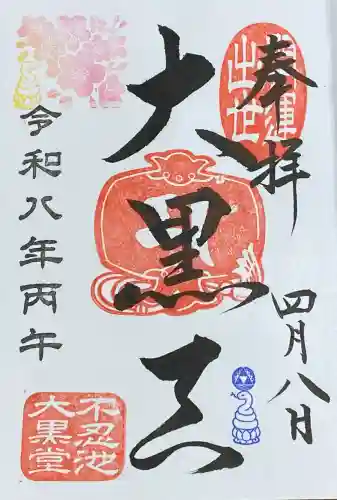 奉拝
開運
出世
大黒天
四月八日
令和八年丙午
不忍池
大黒堂